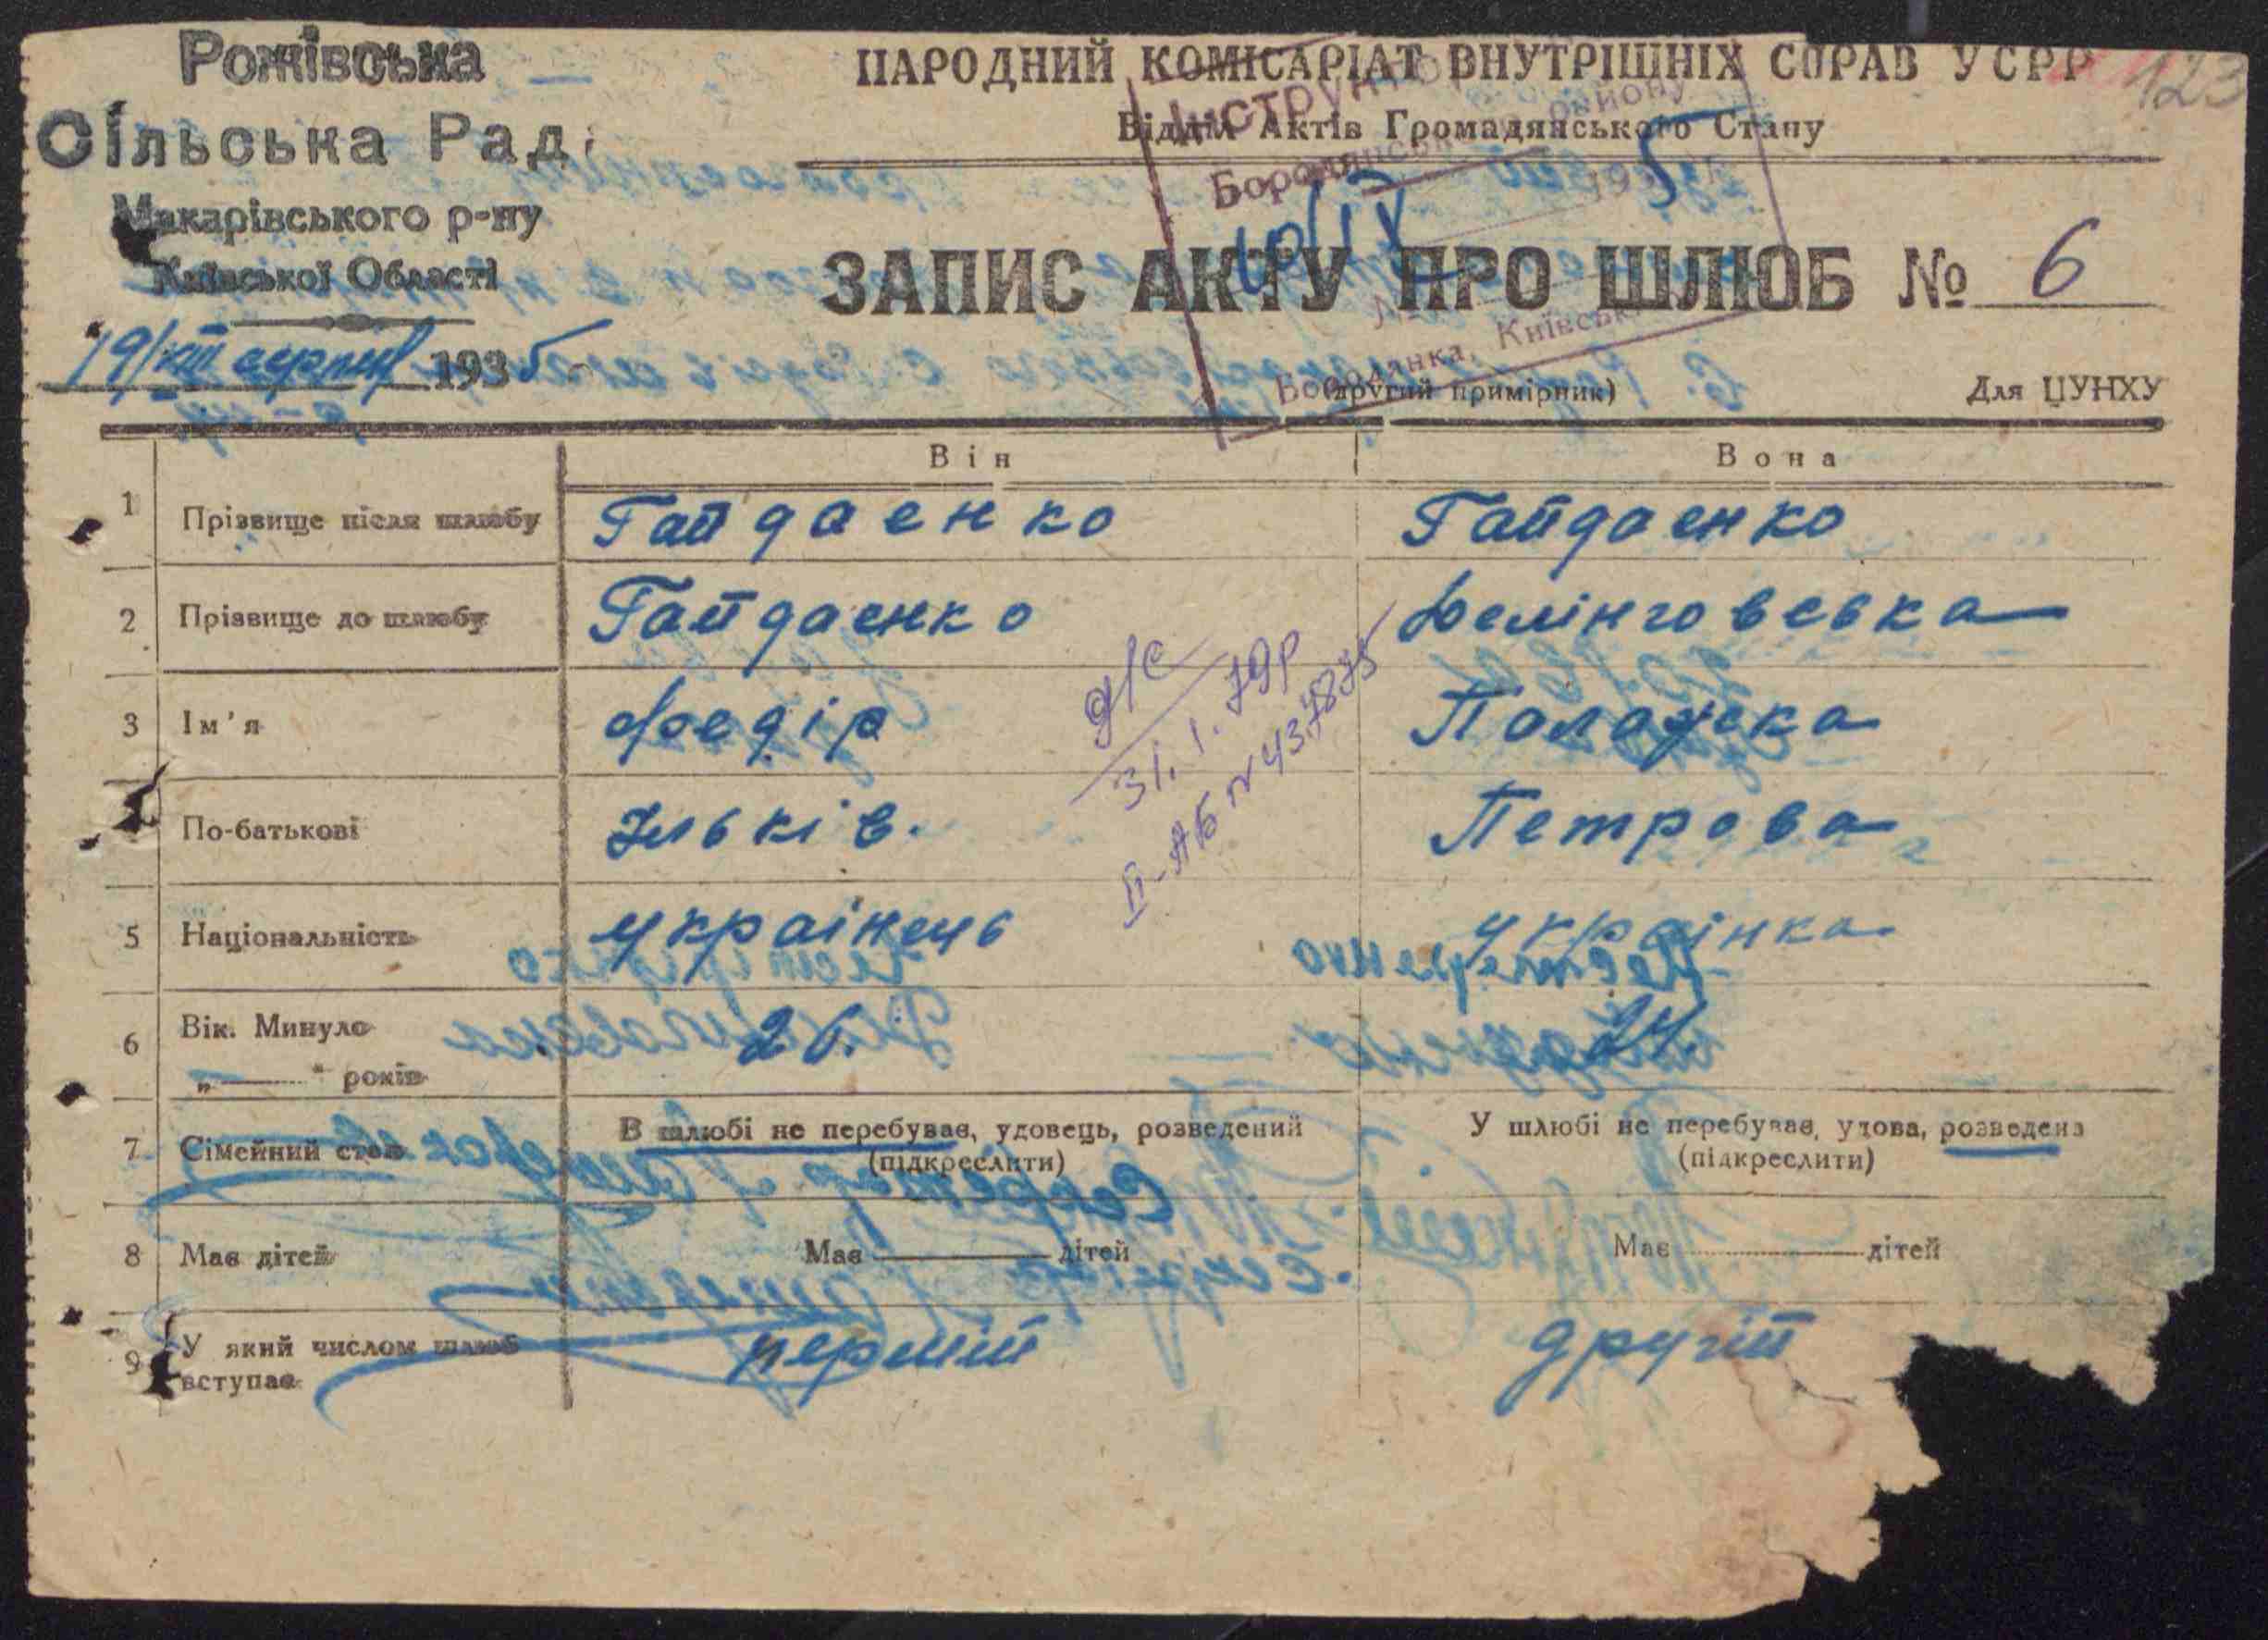 Рожівська
Сільська Рад
Макарівського р-ну
Київської Області
19/VIII серпня 1935
НАРОДНИЙ КОМІСАРІАТ ВНУТРІШНІХ СПРАВ УСРР
123
Відділ Актів Громадянського Стану
ЗАПИС АКТУ ПРО ШЛЮБ № 6
(другий примірник)
Для ЦУНХУ
Бородянка, Київськ
Він Вона
1 Прізвище після шлюбу Гайдаенко Гайдаенко
2 Прізвище до шлюбу Гайдаенко
3 Ім'я Федір Палажка
По-батькові Ильків. Петрова
д/с
31.1.79р
II-АБ № 437875
5 Національність украінець украінка
6 Вік. Минуло 26. 24
„——" років
7 Сімейний стан В шлюбі не перебуває, удовець, розведений У шлюбі не перебуває, удова, розведена
(підкреслити) (підкреслити)
8 Має дітей Має —— дітей Має —— дітей
9 У який числом шлюб вступає перший другій